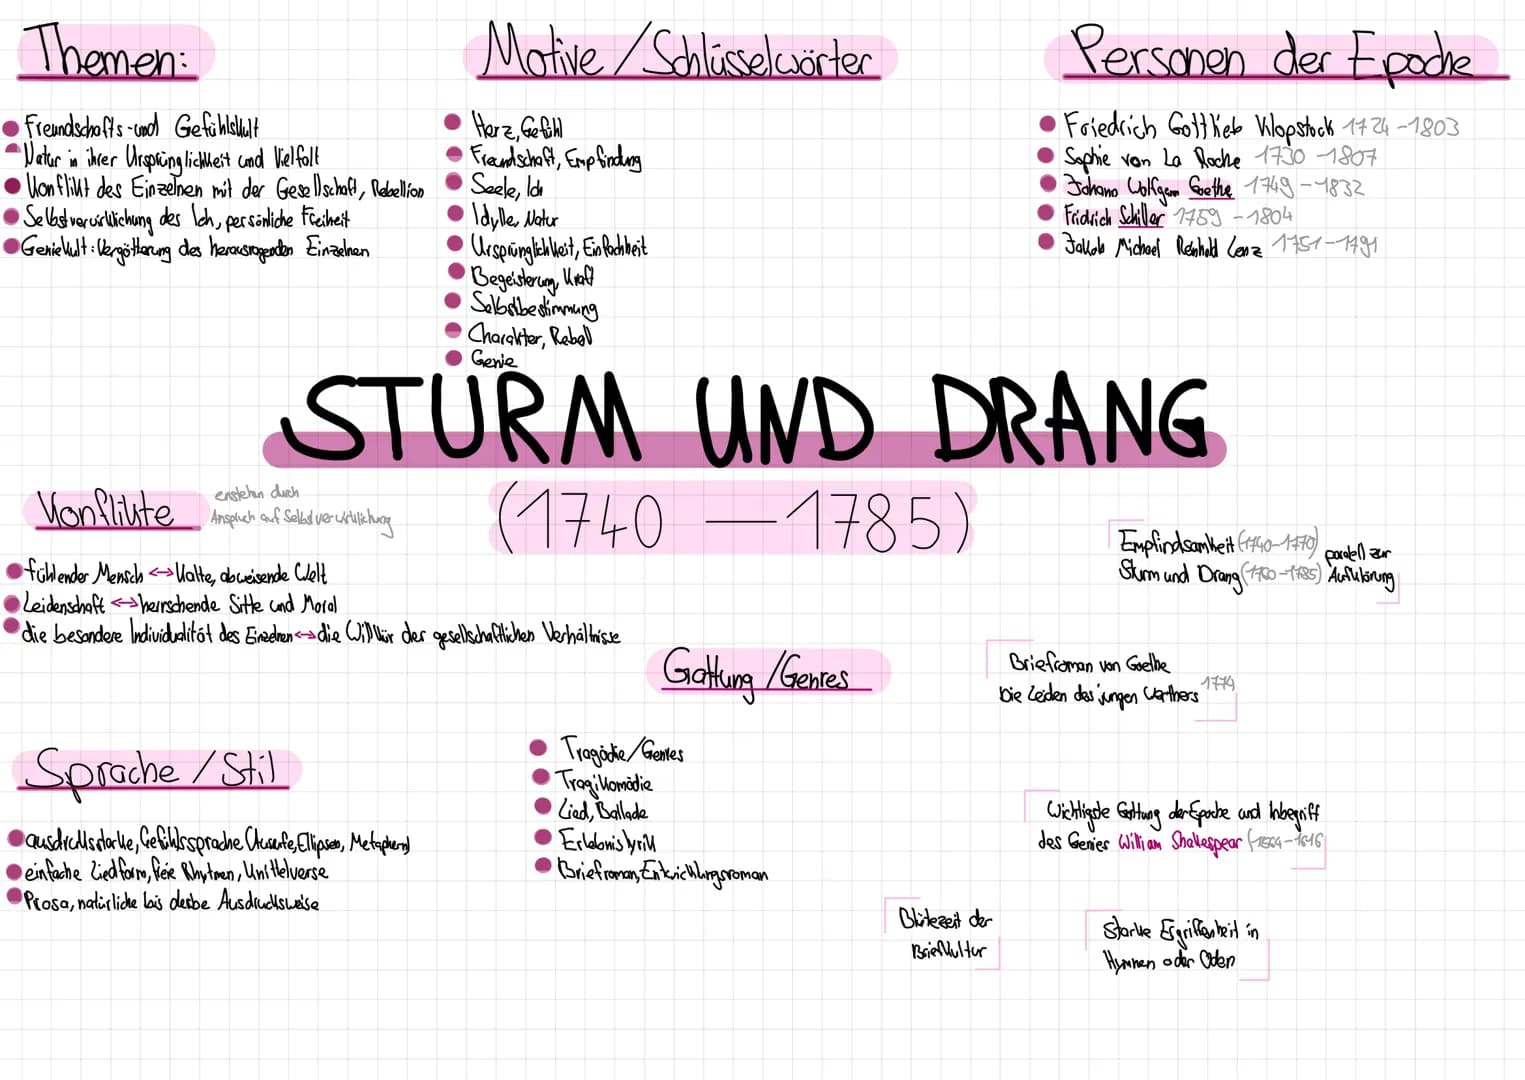 Themen:
Freundschafts- und Gefühlskult
Natur in ihrer Ursprünglichkeit und Vielfalt
Konflikt des Einzelnen mit der Gesellschaft, Rebellion
Selbstverwirklichung des Ich, persönliche Freiheit
Geniekult: Vergötterung des herausragenden Einzelnen
Motive/Schlüsselwörter
Herz, Gefühl
Freundschaft, Empfindung
Seele, Ich
Idylle, Natur
Ursprünglichkeit, Einfachheit
Begeisterung, Kraft
Selbstbestimmung
Charakter, Rebell
Genie
Personen der Epoche
Friedrich Gottlieb Klopstock 1724-1803
Sophie von La Roche 1730-1807
Johann Wolfgang Goethe 1749-1832
Fridrich Schiller 1759-1804
Jakob Michael Reinhold Lenz 1751-1791
STURM UND DRANG
(1740-1785)
Konflikte
enstehen durch
Anspruch auf Selbstverwirklichung
fühlender Mensch ↔ Kalte, abweisende Welt
Leidenschaft ↔ herrschende Sitte und Moral
die besondere Individualität des Einzelnen ↔ die Willkür der gesellschaftlichen Verhältnisse
Empfindsamkeit (1740-1770)
Sturm und Drang (1760-1785)
parallel zur
Aufklärung
Gattung/Genres
Tragödie/Genres
Tragikomödie
Lied, Ballade
Erlebnislyrik
Briefroman, Entwicklungsroman
Briefroman von Goethe
Die Leiden des jungen Werthers 1774
Sprache/Stil
ausdrucksstarke, Gefühlssprache (Ausrufe, Ellipsen, Metaphern)
einfache Liedform, freie Rhytmen, Knittelverse
Prosa, natürliche bis derbe Ausdrucksweise
Wichtigste Gattung der Epoche und Inbegriff
des Genies William Shakespear (1564-1616
Blütezeit der
Briefkultur
Starke Ergriffenheit in
Hymnen oder Oden